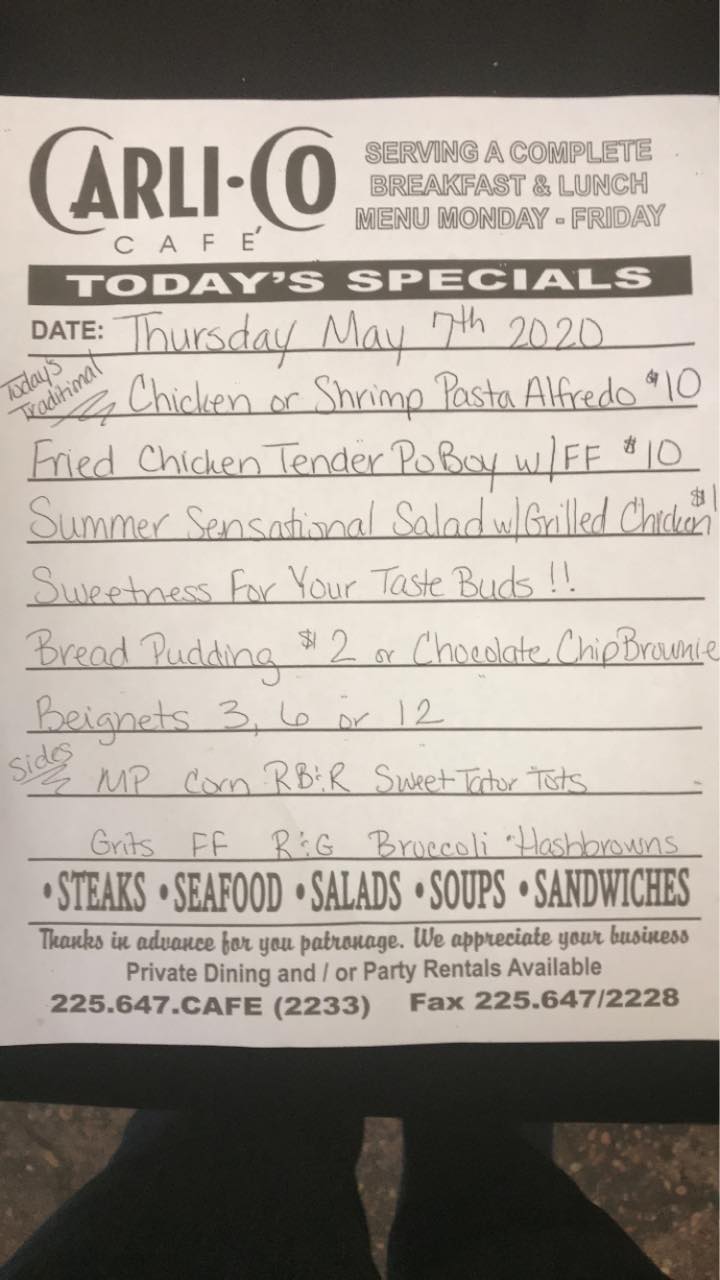 CARLI-CO
CAFÉ
SERVING A COMPLETE
BREAKFAST & LUNCH
MENU MONDAY - FRIDAY
TODAY'S SPECIALS
DATE: Thursday May 7th 2020
Today's
Traditional
Chicken or Shrimp Pasta Alfredo $10
Fried Chicken Tender PoBoy w/FF $10
Summer Sensational Salad w/Grilled Chicken
Sweetness For Your Taste Buds !!
Bread Pudding $2 or Chocolate Chip Brownie
Beignets 3, 6 or 12
Sides
MP Corn RB&R Sweet Tator Tots
Grits FF R&G Broccoli Hashbrowns
• STEAKS • SEAFOOD • SALADS • SOUPS • SANDWICHES
Thanks in advance for you patronage. We appreciate your business
Private Dining and / or Party Rentals Available
225.647.CAFE (2233) Fax 225.647/2228